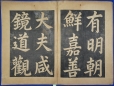 有明朝
鮮嘉善
大夫咸
鏡道觀